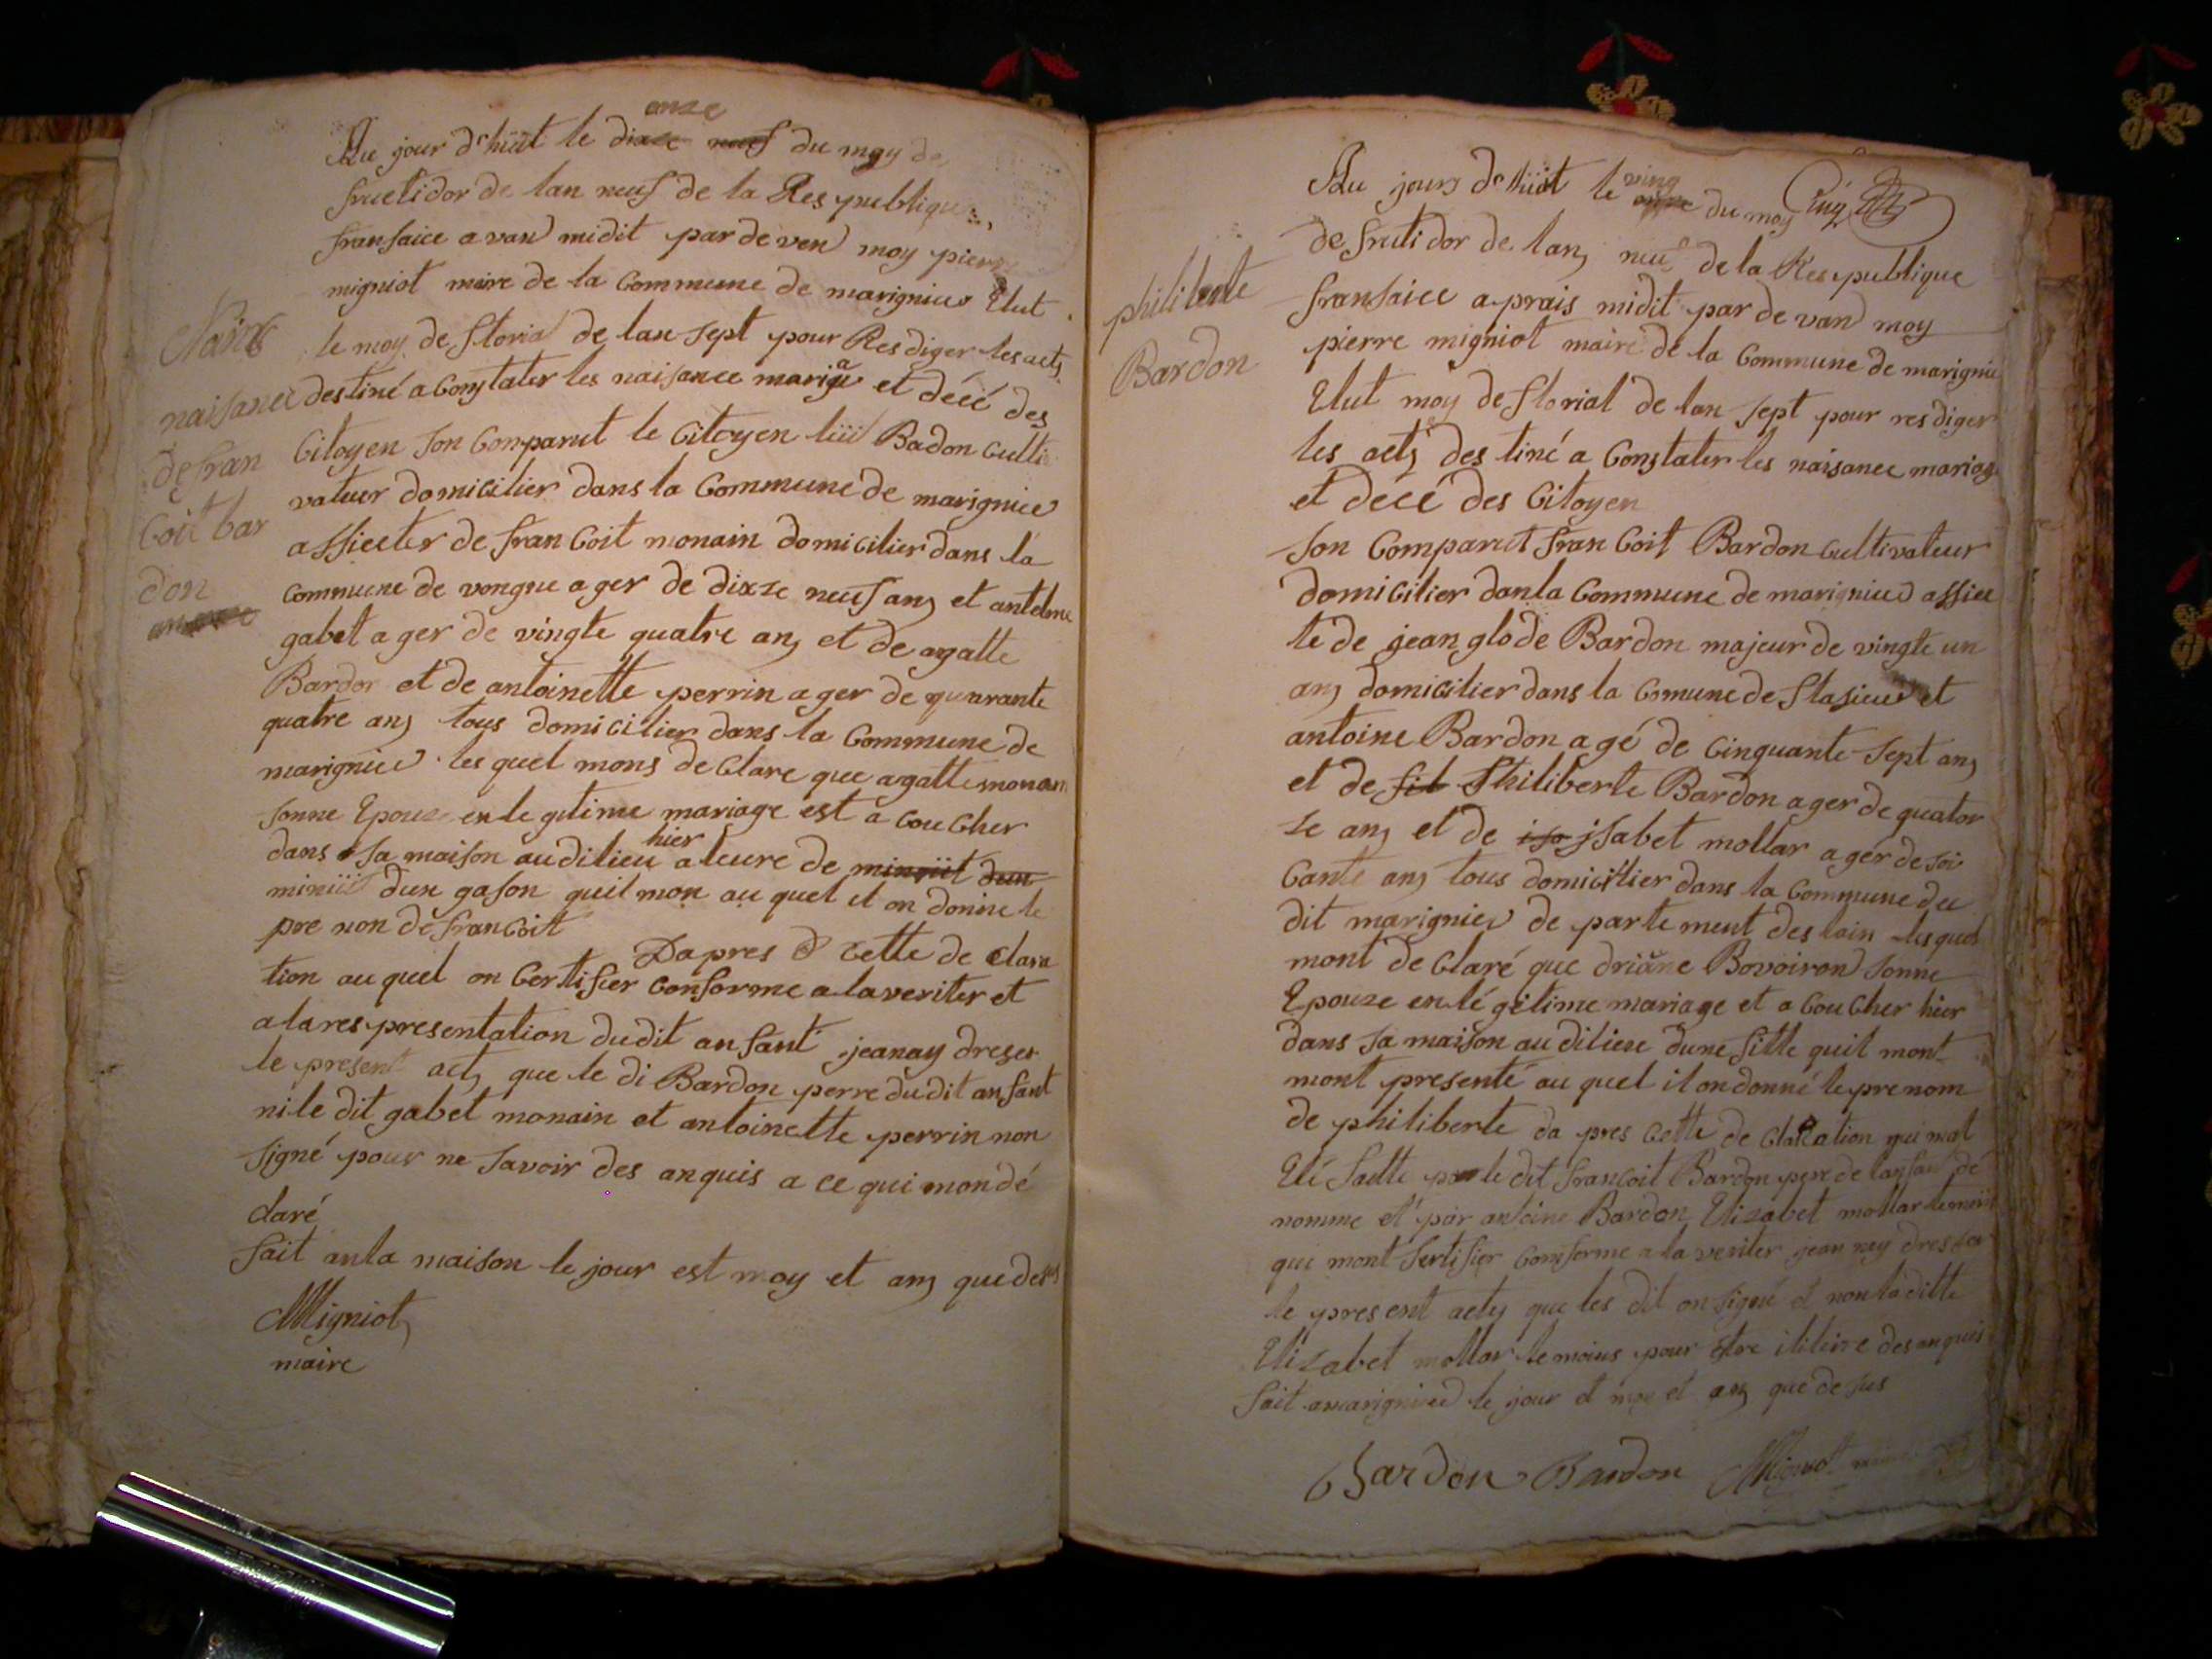 onze
Au jour dhüit le dixze neuf du moy de
fructidor de lan neuf de la Respublique
fransaice avan midit par de ven moy pierre
migniot maire de la Commune de marignieu Elut
le moy de florial de lan sept pour Resdiger les acts
destiné a Constater les naisance mariga et décé des
Citoyen Son Comparut le Citoyen Badon Culti
vateur domicilier dans la Commune de marignieu
assiester de franCoit monain domicilier dans la
Commune de vongne ager de dixze neuf ans et antelme
gabet ager de vingte quatre ans et de agatte
Bardor et de antoinette perrin ager de quarante
quatre ans tous domicilier dans la Commune de
marignieu les quel mons deClare que agatte monain
sonne Epouze en legitime mariage est a CouCher
dans sa maison audilieu hier aleure de minuit dun
minüit dun gason quil mon au quel il on donne le
pre non de franCoit
Dapres cette de Clara
tion au quel on Certifier Conforme a la veriter et
a la respresentation dudit anfant jeanay dreser
le present acts que le di Bardon perre dudit anfant
ni le dit gabet monain et antoinette perrin non
signé pour ne savoir des anquis a ce qui mon dé
claré
fait anla maison le jour est moy et ans que desus
Migniot
maire
naisance
de fran
Coit bar
don
Au jours dhüit le ving du moy
de frutidor de lans neuf de la Respublique
fransaice aprais midit par de van moy
pierre migniot maire de la Commune de marignieu
Elut moy de florial de lan sept pour resdiger
les acts destiné a Constater les naisance mariage
et décé des Citoyen
Son Comparut franCoit Bardon Cultivateur
domiCilier dan la Commune de marignieu assiee
te de jean glode Bardon majeur de vingte un
ans domicilier dans la Comune de flasieu et
antoine Bardon agé de Cinquante-sept ans
et de fil Philiberte Bardon ager de quator
ze ans et de iso jsabet mollar ager de soi
Cante ans tous domicilier dans la Commune du
dit marignieu de partement des lain les quel
mont de Claré que driane Bovoiron sonne
Epouze en légitime mariage et a CouCher hier
dans sa maison au dilieu dune fille quil mont
mont presenté au quel il on donné le prenom
de philiberte da pres cette de Claration qui mat
Eté faitte par le dit franCoit Bardon pere de lanfan dé
nomme et par antoine Bardon Elizabet mollar temoin
qui mont Sertifier Conforme a la veriter jean ney dresser
le present acts que les dit on signé et non la ditte
Elizabet mollar temoins pour estre ilitere des anquis
fait a marignieu le jour et moy et ans que desus
Bardon Bardon Migniot
philiberte
Bardon